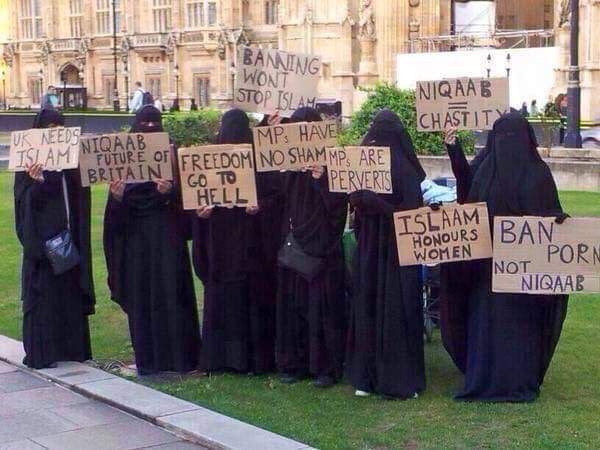 UK NEEDS
ISLAM
NIQAAB
FUTURE OF
BRITAIN
FREEDOM
GO TO
HELL
BANNING
WONT
STOP ISLAM
MPs HAVE
NO SHAM
MPs ARE
PERVERTS
NIQAAB
=
CHASTITY
ISLAAM
HONOURS
WOMEN
BAN PORN
NOT NIQAAB